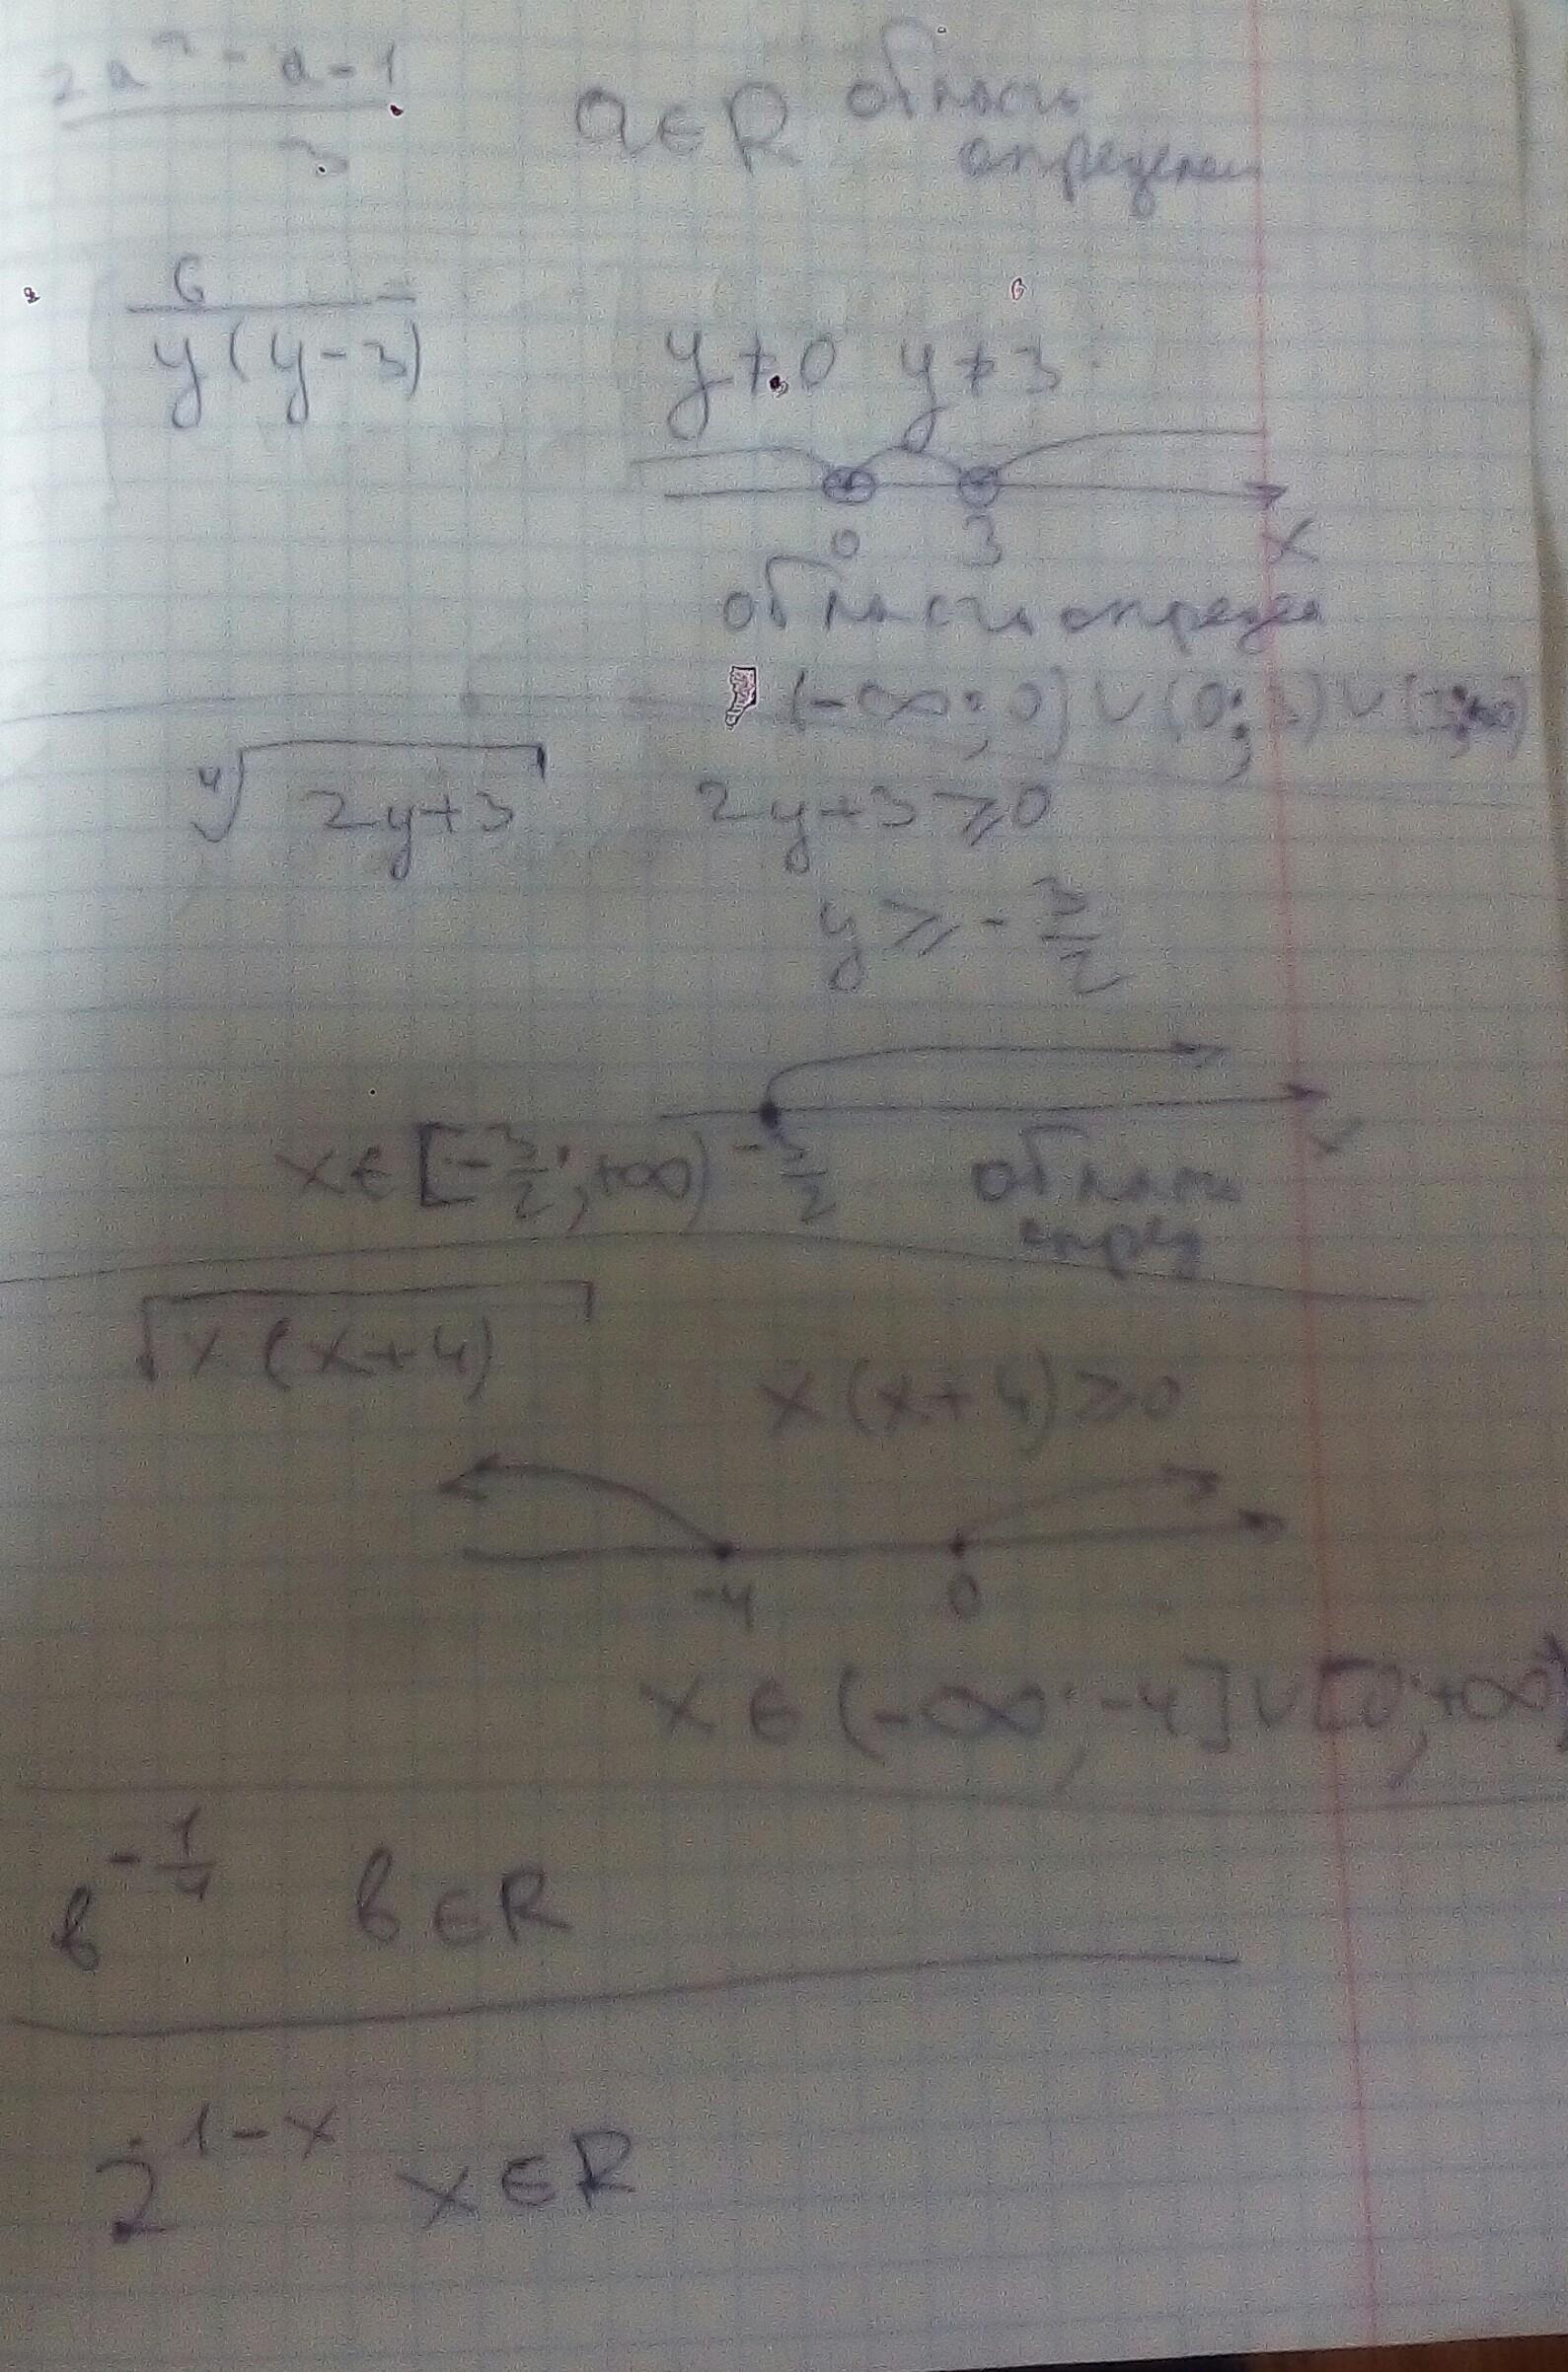 2a² - a - 1 / 3 a∈R область
определен
6 / y(y-3)
y≠0 y≠3
0 3 x
область определ
(-∞; 0) ∨ (0; 3) ∨ (3; +∞)
⁴√2y+3 2y+3 ⩾ 0
y ⩾ - 3/2
x
x∈[-3/2; +∞) -3/2 область
опред
√x(x+4)
x(x+4) ≥ 0
-4 0
x ∈ (-∞; -4] ∨ [0; +∞)
b^(-1/4) b∈R
2^(1-x) x∈R